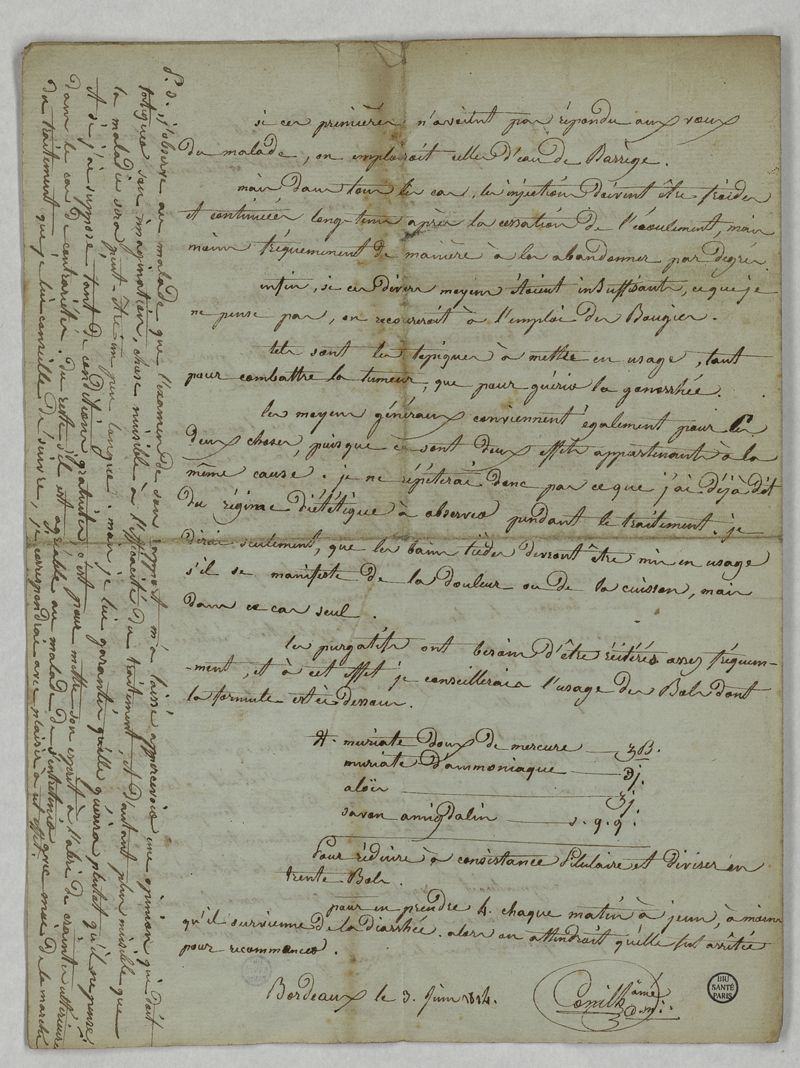 si ces premières n'avoient pas répondu aux vœux
du malade, on emploiroit celle d'eau de Barrège.
mais dans tous les cas, les injections doivent être froides
et continuées long-tems après la cessation de l'écoulement, mais
moins fréquemment de manière à les abandonner par degrés.
enfin, si ces divers moyens étoient insuffisants, ce que je
ne pense pas, on recourroit à l'emploi des Bougies.
tels sont les topiques à mettre en usage, tant
pour combattre la tumeur, que pour guérir la gonorrhée.
les moyens généraux conviennent également pour les
deux choses, puisque ce sont deux effets appartenants à la
même cause. je ne répéterai donc pas ce que j'ai déjà dit
du régime diététique à observer pendant le traitement. je
dirai seulement, que les bains tièdes devront être mis en usage
s'il se manifeste de la douleur ou de la cuisson, mais
dans ce cas seul.
les purgatifs ont besoin d'être réitérés assez fréquem-
-ment, et à cet effet je conseillerais l'usage des Bols dont
la formule est ci dessous.
♃. muriate doux de mercure — ʒß.
muriate d'ammoniaque — ℈j.
aloës — ʒj.
savon amigdalin — s. q. q.
Pour réduire à consistance Pilulaire et diviser en
trente Bols.
pour en prendre 4. chaque matin à jeun, à moins
qu'il survienne de la diarrhée. alors on attendroit qu'elle fut arrêtée
pour recommencer.
Bordeaux le 3. Juin 1814.
ainé
D. M.
BIU
SANTÉ
PARIS
P. S. j'observe au malade que l'examen de son rapport m'a laissé appercevoir une opinion qui doit
fatiguer son imagination, chose nuisible à l'efficacité du traitement, et d'autant plus nuisible que
la maladie sera peut-être un peu longue. mais je lui garantis qu'elle guérira plutôt qu'il ne pense.
et si j'ai supposé tant de conditions gratuites, c'est pour mettre son esprit à l'abri de craintes ultérieures
dans le cas de contrariétés. du reste s'il est agréable au malade de s'entretenir avec moi de la marche
du traitement que je lui conseille de suivre, je correspondrai avec plaisir à cet effet.